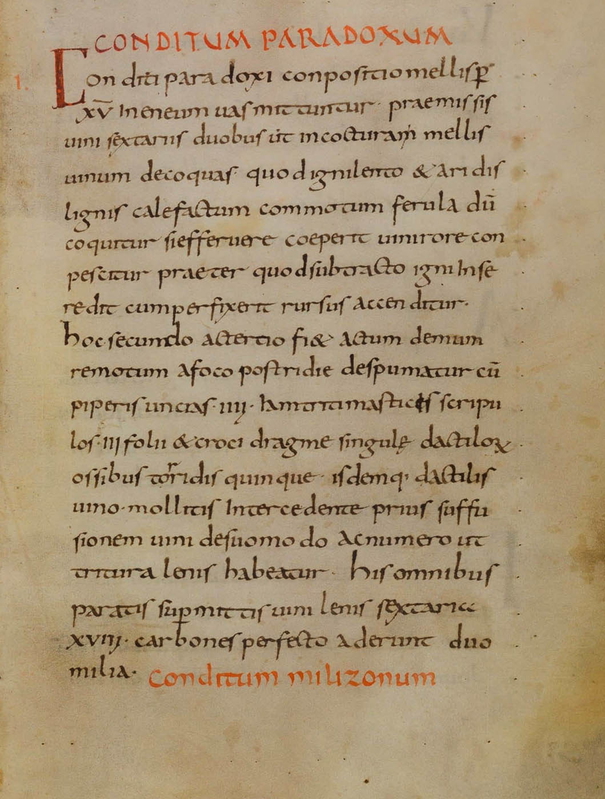 CONDITUM PARADOXUM
1.
Con diti para doxi conpositio mellis p̄
xv̄ In eneum uas mittuntur · praemissis
uini sextariis duobus ut in cocturam mellis
uinum decoquas · quod igni lento & aridis
lignis calefactum commotum ferula dū
coquitur si efferuere coeperit uini rore con
pescitur praeter quod subtracto igni In se
redit cum perfixerit rursus accenditur ·
hoc secundo ac tertio fi& actum demum
remotum a foco postridie despumatur cū
piperis uncias · iiii · Iam triti masticis scripu
los · III folii & croci dragme singulę dactilorꝝ
ossibus torridis quinque · isdemq; dactilis
uino · mollitis Intercedente prius suffu
sionem uini de suo modo ac numero ut
tritura lenis habeatur · his omnibus
paratis suꝑmittis uini lenis sextaria
xviii · carbones perfecto aderunt duo
milia · Conditum milizonum